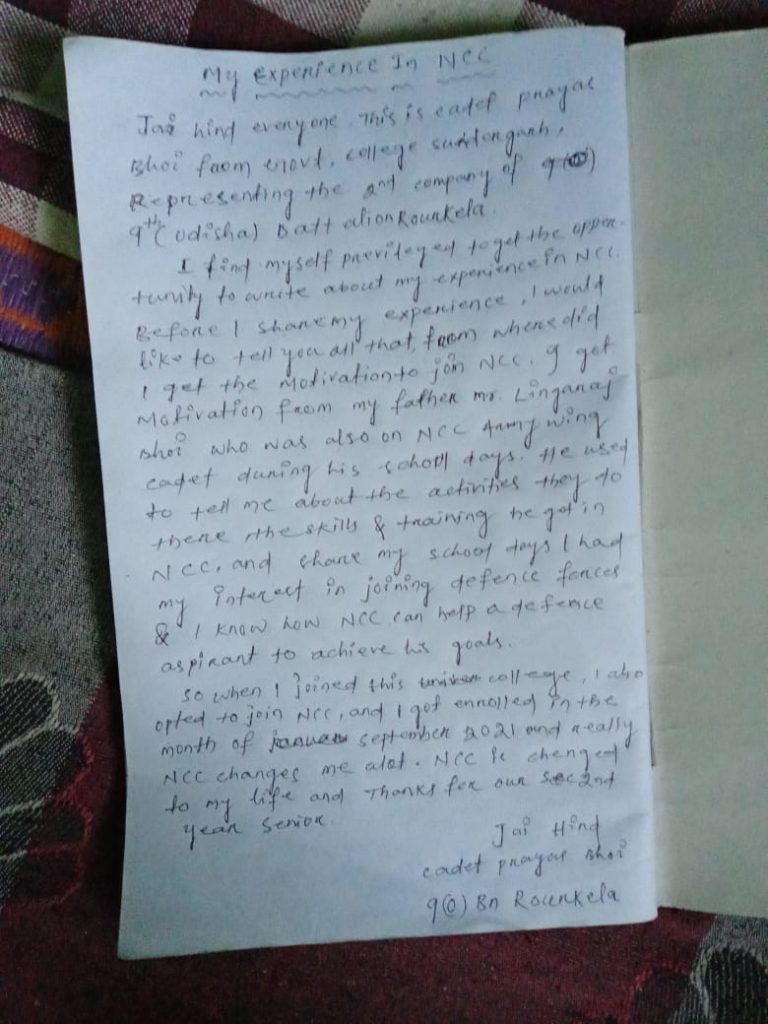 My Experience In NCC
Jai hind everyone. This is cadet prayas
Bhoi from Govt. college sundergarh,
Representing the 2nd company of 9(O)
9th (odisha) Batt alion Rourkela.
I find myself previleged to get the oppor-
tunity to write about my experience in NCC.
Before I share my experience, I would
like to tell you all that, from where did
I get the Motivation to join NCC. I got
Motivation from my father mr. Lingaraj
Bhoi who was also on NCC Army wing
cadet during his school days. He used
to tell me about the activities they do
there the skills & training he got in
NCC, and share my school days I had
my interest in joining defence forces
& I know how NCC can help a defence
aspirant to achieve his goals.
So when I joined this college, I also
opted to join NCC, and I got enrolled in the
month of september 2021 and really
NCC changes me alot. NCC is chenged
to my life and Thanks for our 2nd
year Senior.
Jai Hind
cadet prayas Bhoi
9(O) Bn Rourkela